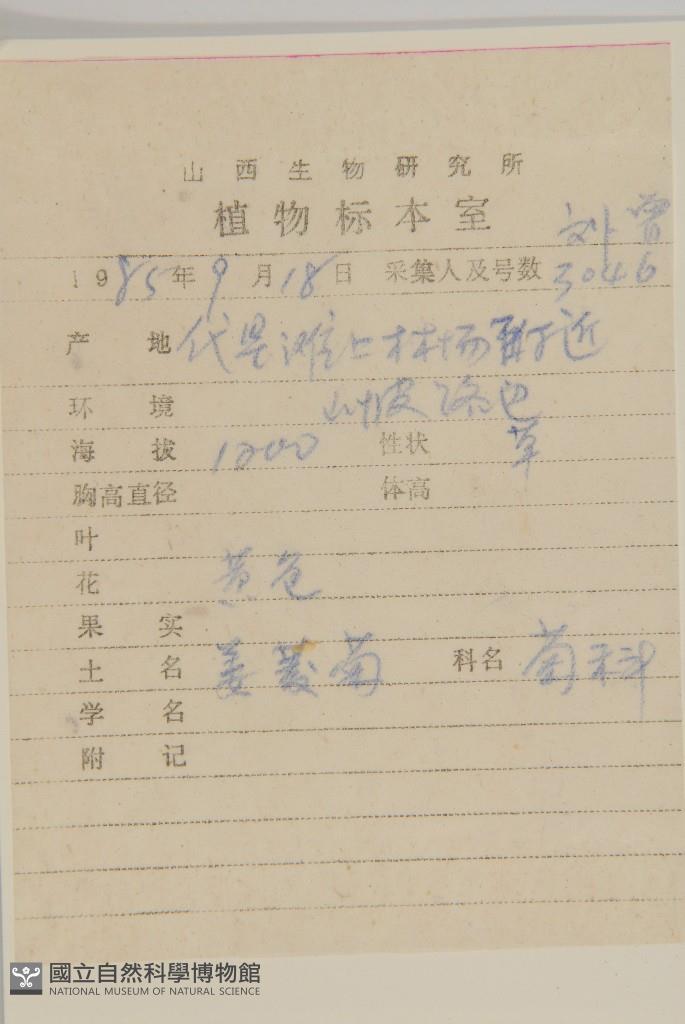 山西生物研究所
植物标本室
1985年9月18日 采集人及号数 刘 曾 3046
产地 代县滩上林场附近
环境 山坡路边
海拔 1200 性状 草
胸高直径 体高
叶
花 黄色
果实
土名 菊 科名 菊科
学名
附记
國立自然科學博物館
NATIONAL MUSEUM OF NATURAL SCIENCE